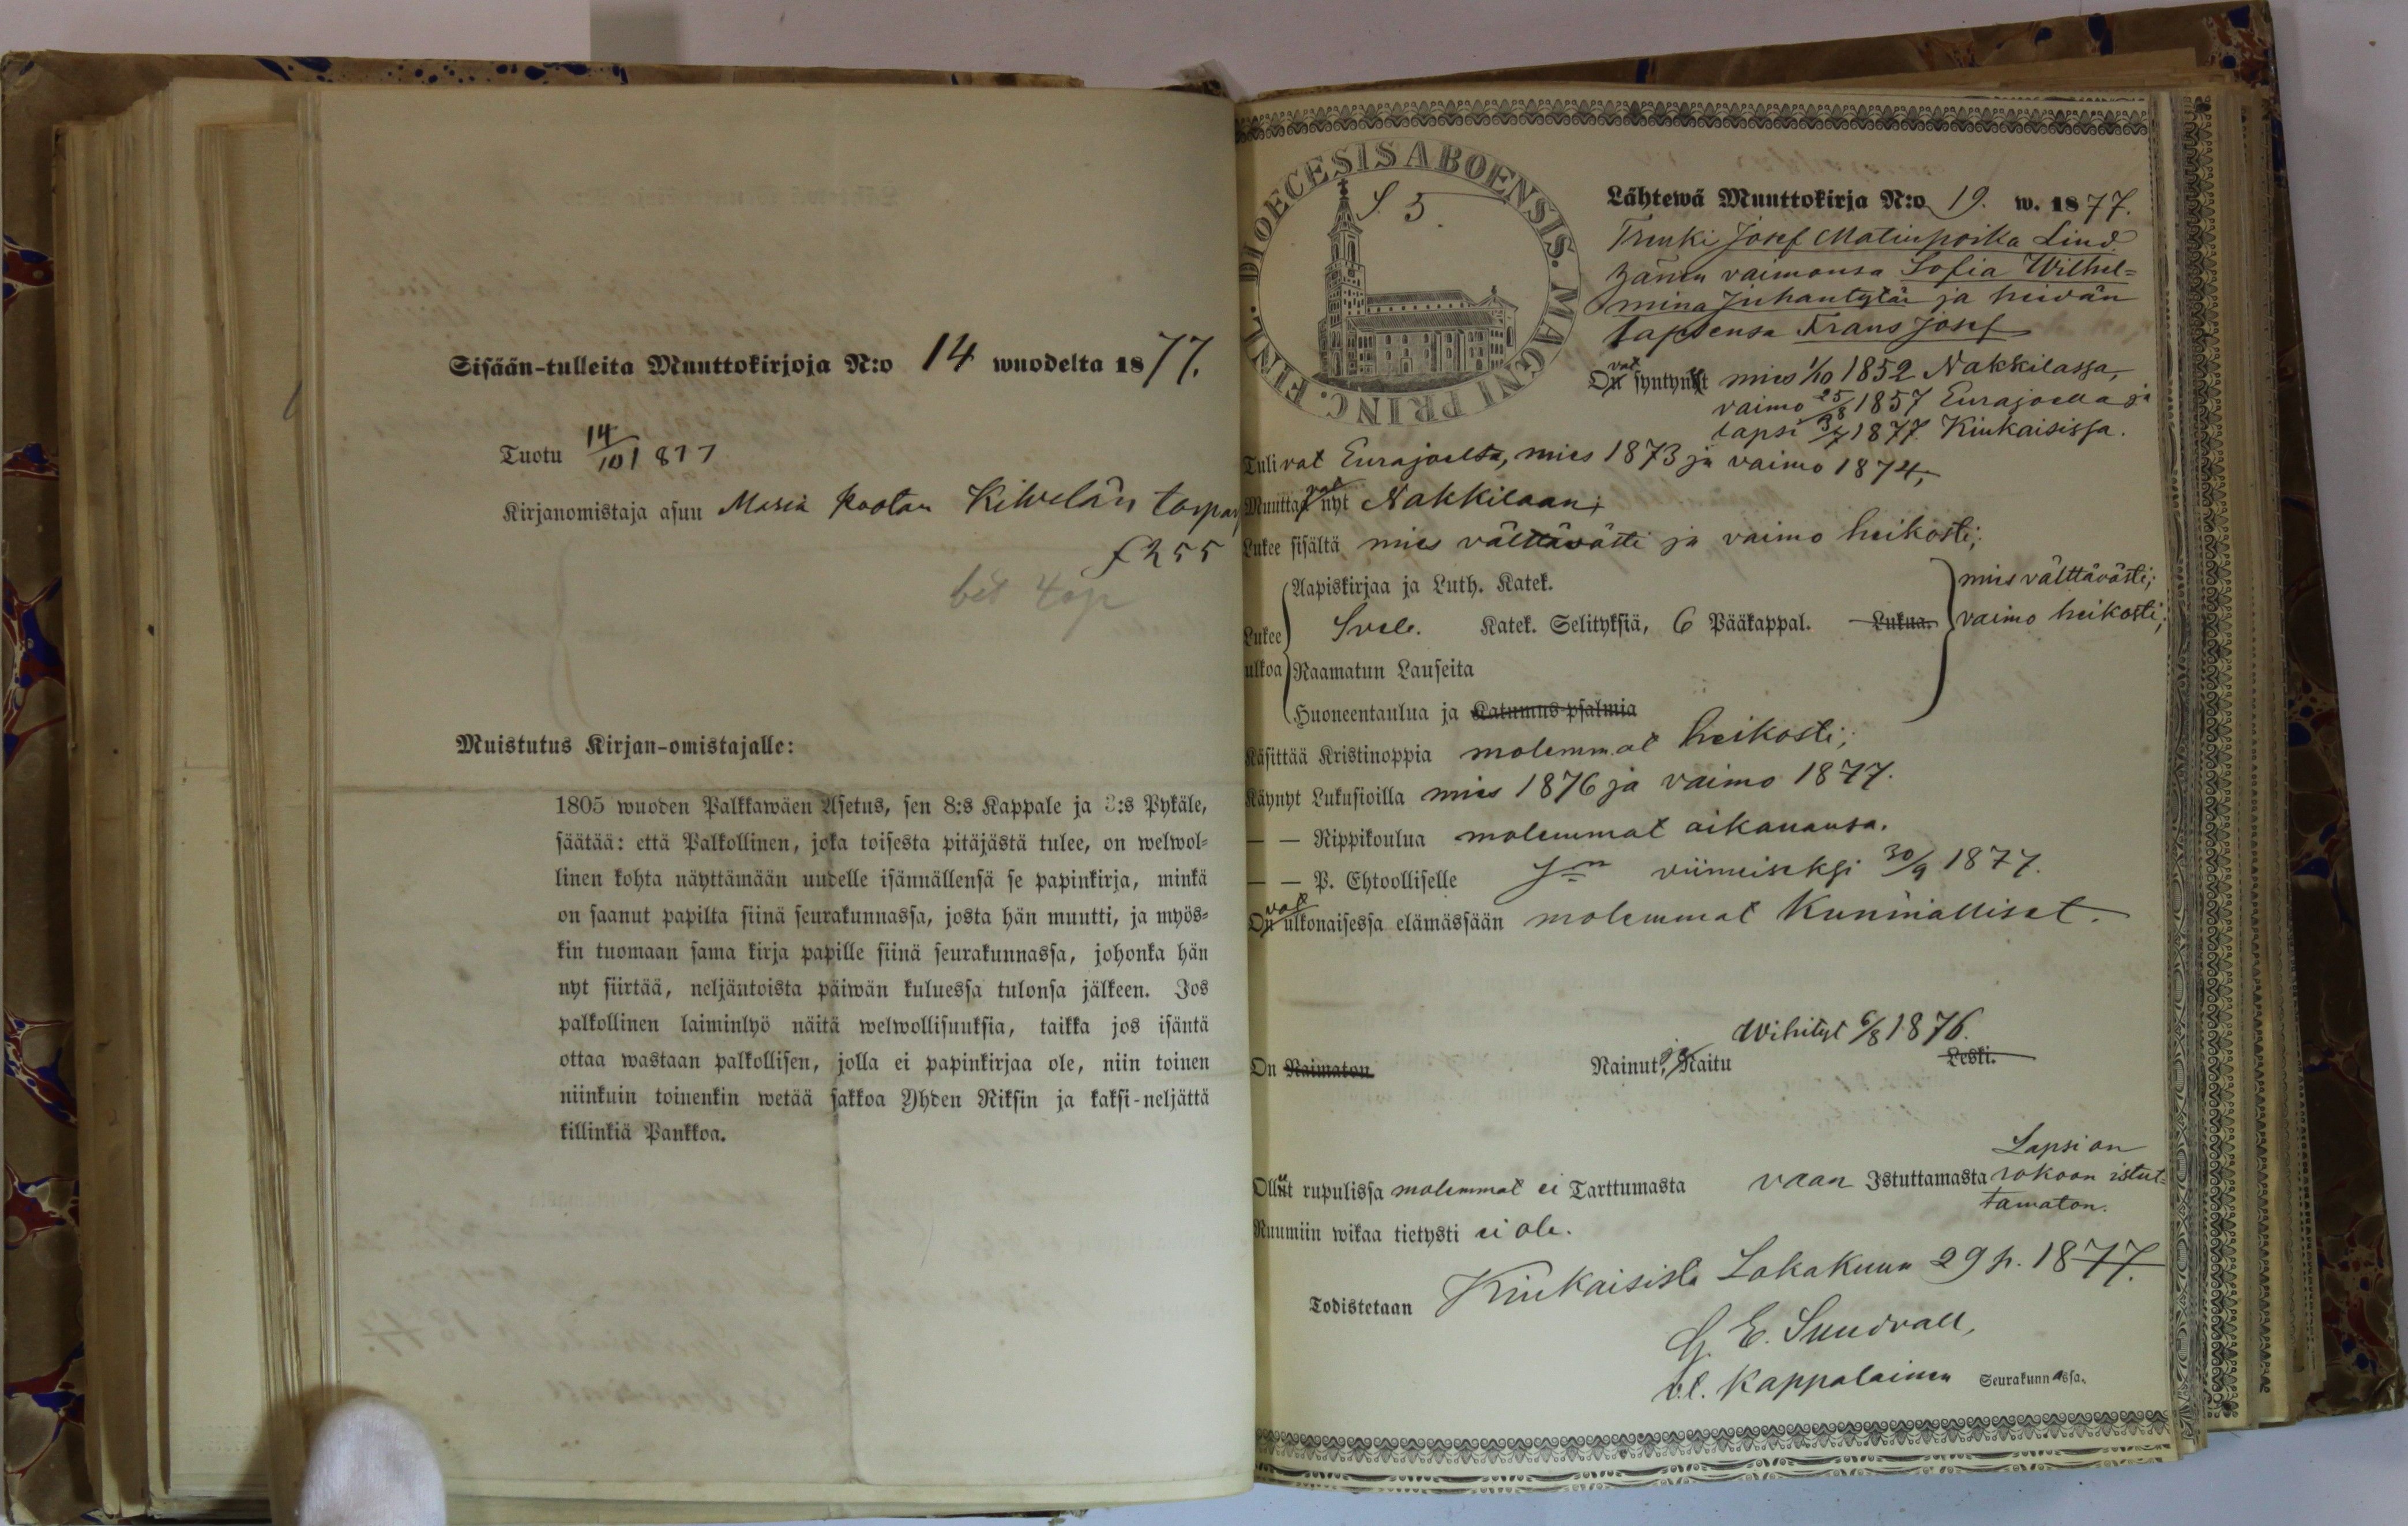 Sisään-tulleita Muuttokirjoja N:o 14 wuodelta 1877.
Tuotu 14/10 1877
Kirjanomistaja asuu Maria Kihvelän torpan
f 255
Muistutus Kirjan-omistajalle:
1805 wuoden Palkkawäen Asetus, sen 8:s Kappale ja 3:s Pykäle,
säätää: että Palkollinen, joka toisesta pitäjästä tulee, on welwol-
linen kohta näyttämään uudelle isännällensä se papinkirja, minkä
on saanut papilta siinä seurakunnassa, josta hän muutti, ja myös-
kin tuomaan sama kirja papille siinä seurakunnassa, johonka hän
nyt siirtää, neljäntoista päiwän kuluessa tulonsa jälkeen. Jos
palkollinen laiminlyö näitä welwollisuuksia, taikka jos isäntä
ottaa wastaan palkollisen, jolla ei papinkirjaa ole, niin toinen
niinkuin toinenkin wetää sakkoa Yhden Riksin ja kaksi-neljättä
killinkiä Pankkoa.
DIOECESIS ABOENSIS. MAGNI PRINC. FINL.
S. 5.
Lähtewä Muuttokirja N:o 19. w. 1877.
Trenki Josef Matinpoika Lind
vaimonsa Sofia Wilhel=
mina Juhantytär ja heidän
lapsensa Frans Josef
Ovat syntynyt mies 1/10 1852 Nakkilassa,
vaimo 25/8 1857 Eurajoella ja
lapsi 3/7 1877 Kiukaisissa.
Tulivat Eurajoelta, mies 1873 ja vaimo 1874;
Muuttavat nyt Nakkilaan;
Lukee sisältä mies välttävästi ja vaimo heikosti;
Aapiskirjaa ja Luth. Katek.
mies välttävästi;
Lukee Svel. Katek. Selityksiä, 6 Pääkappal. Lukua. vaimo heikosti;
ulkoa Raamatun Lauseita
Huoneentaulua ja Katumus-psalmia
Käsittää Kristinoppia molemmat heikosti;
Käynyt Lukusioilla mies 1876 ja vaimo 1877.
— — Rippikoulua molemmat aikanansa.
— — P. Ehtoolliselle viimeiseksi 30/9 1877.
Ovat ulkonaisessa elämässään molemmat kunnialliset.
Wihityt 6/8 1876.
On Naimaton Nainut, ja Naitu Leski.
Lapsi on
Ollut rupulissa molemmat ei Tarttumasta vaan Istuttamasta rokoon istut-
tamaton.
Ruumiin wikaa tietysti ei ole.
Todistetaan Kiukaisista Lokakuun 29 p. 1877.
G. E. Sundvall,
v.t. Kappalainen Seurakunnassa.